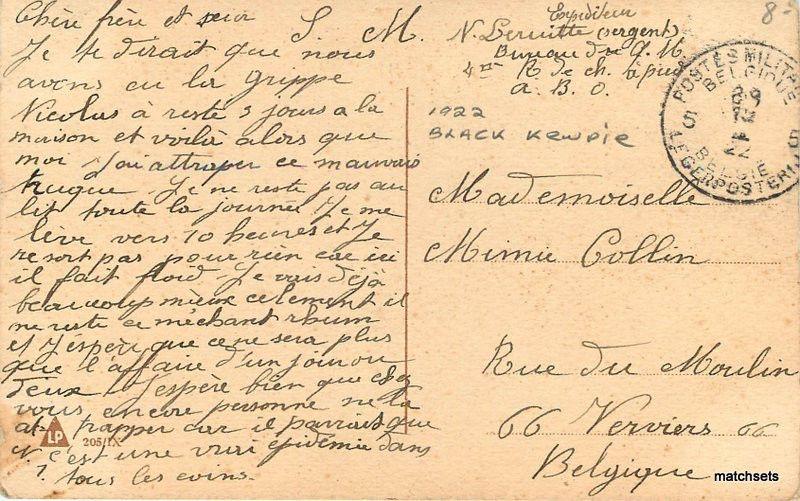 Chère frère et seur
Je te dirait que nous
avons eu la grippe
Nicolas à reste 3 jours a la
maison et voilà alors que
moi J'ai attraper ce mauvais
truque Je ne reste pas au
lit toute la journée Je me
lève vers 10 heures et Je
resort pas pour rien car ici
il fait floid. Je vais déjà
beaucoup mieux celement il
ne reste ce méchant rhum
et J'espère que ce ne sera plus
que l'affaire d'un jour ou
deux J'espère bien que chez
vous encore personne ne la
attrapper car il parrait que
c'est une vrai épidémie dans
tous les coins.
LP
205/IX
S. M.
Expéditeur
N. (sergent)
Bureau du Q. M.
4me R de ch. à pied
A. B. O.
8-
1922
BLACK Kewpie
POSTES MILITAIRES
BELGIQUE
22
5 5
BELGIE
LEGERPOSTERIJ
Mademoiselle
Mimie Collin
Rue du Moulin
66 Verviers 66
Belgique
matchsets